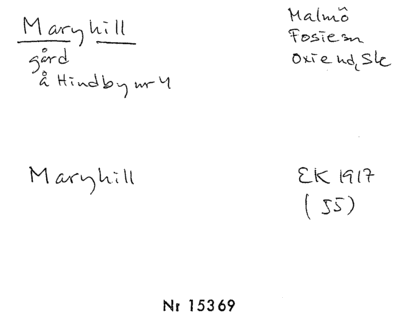 Maryhill
gård
å Hindby nr 4
Malmö
Fosie sn
Oxie hd, Sk
Maryhill
EK 1917
(55)
Nr 15369